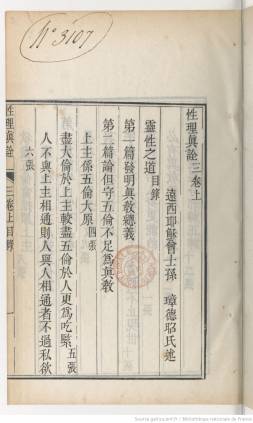 N° 3107
性理眞詮三卷上
遠西耶穌會士孫璋德昭氏述
靈性之道目錄
第一篇發明眞教總義
第二篇論但守五倫不足爲眞教
上主係五倫大原 四張
盡大倫於上主較盡五倫於人更爲吃緊 五張
人不與上主相通則人與人相通者不過私欲
六張
性理眞詮 三卷上目錄
Source gallica.bnf.fr / Bibliothèque nationale de France